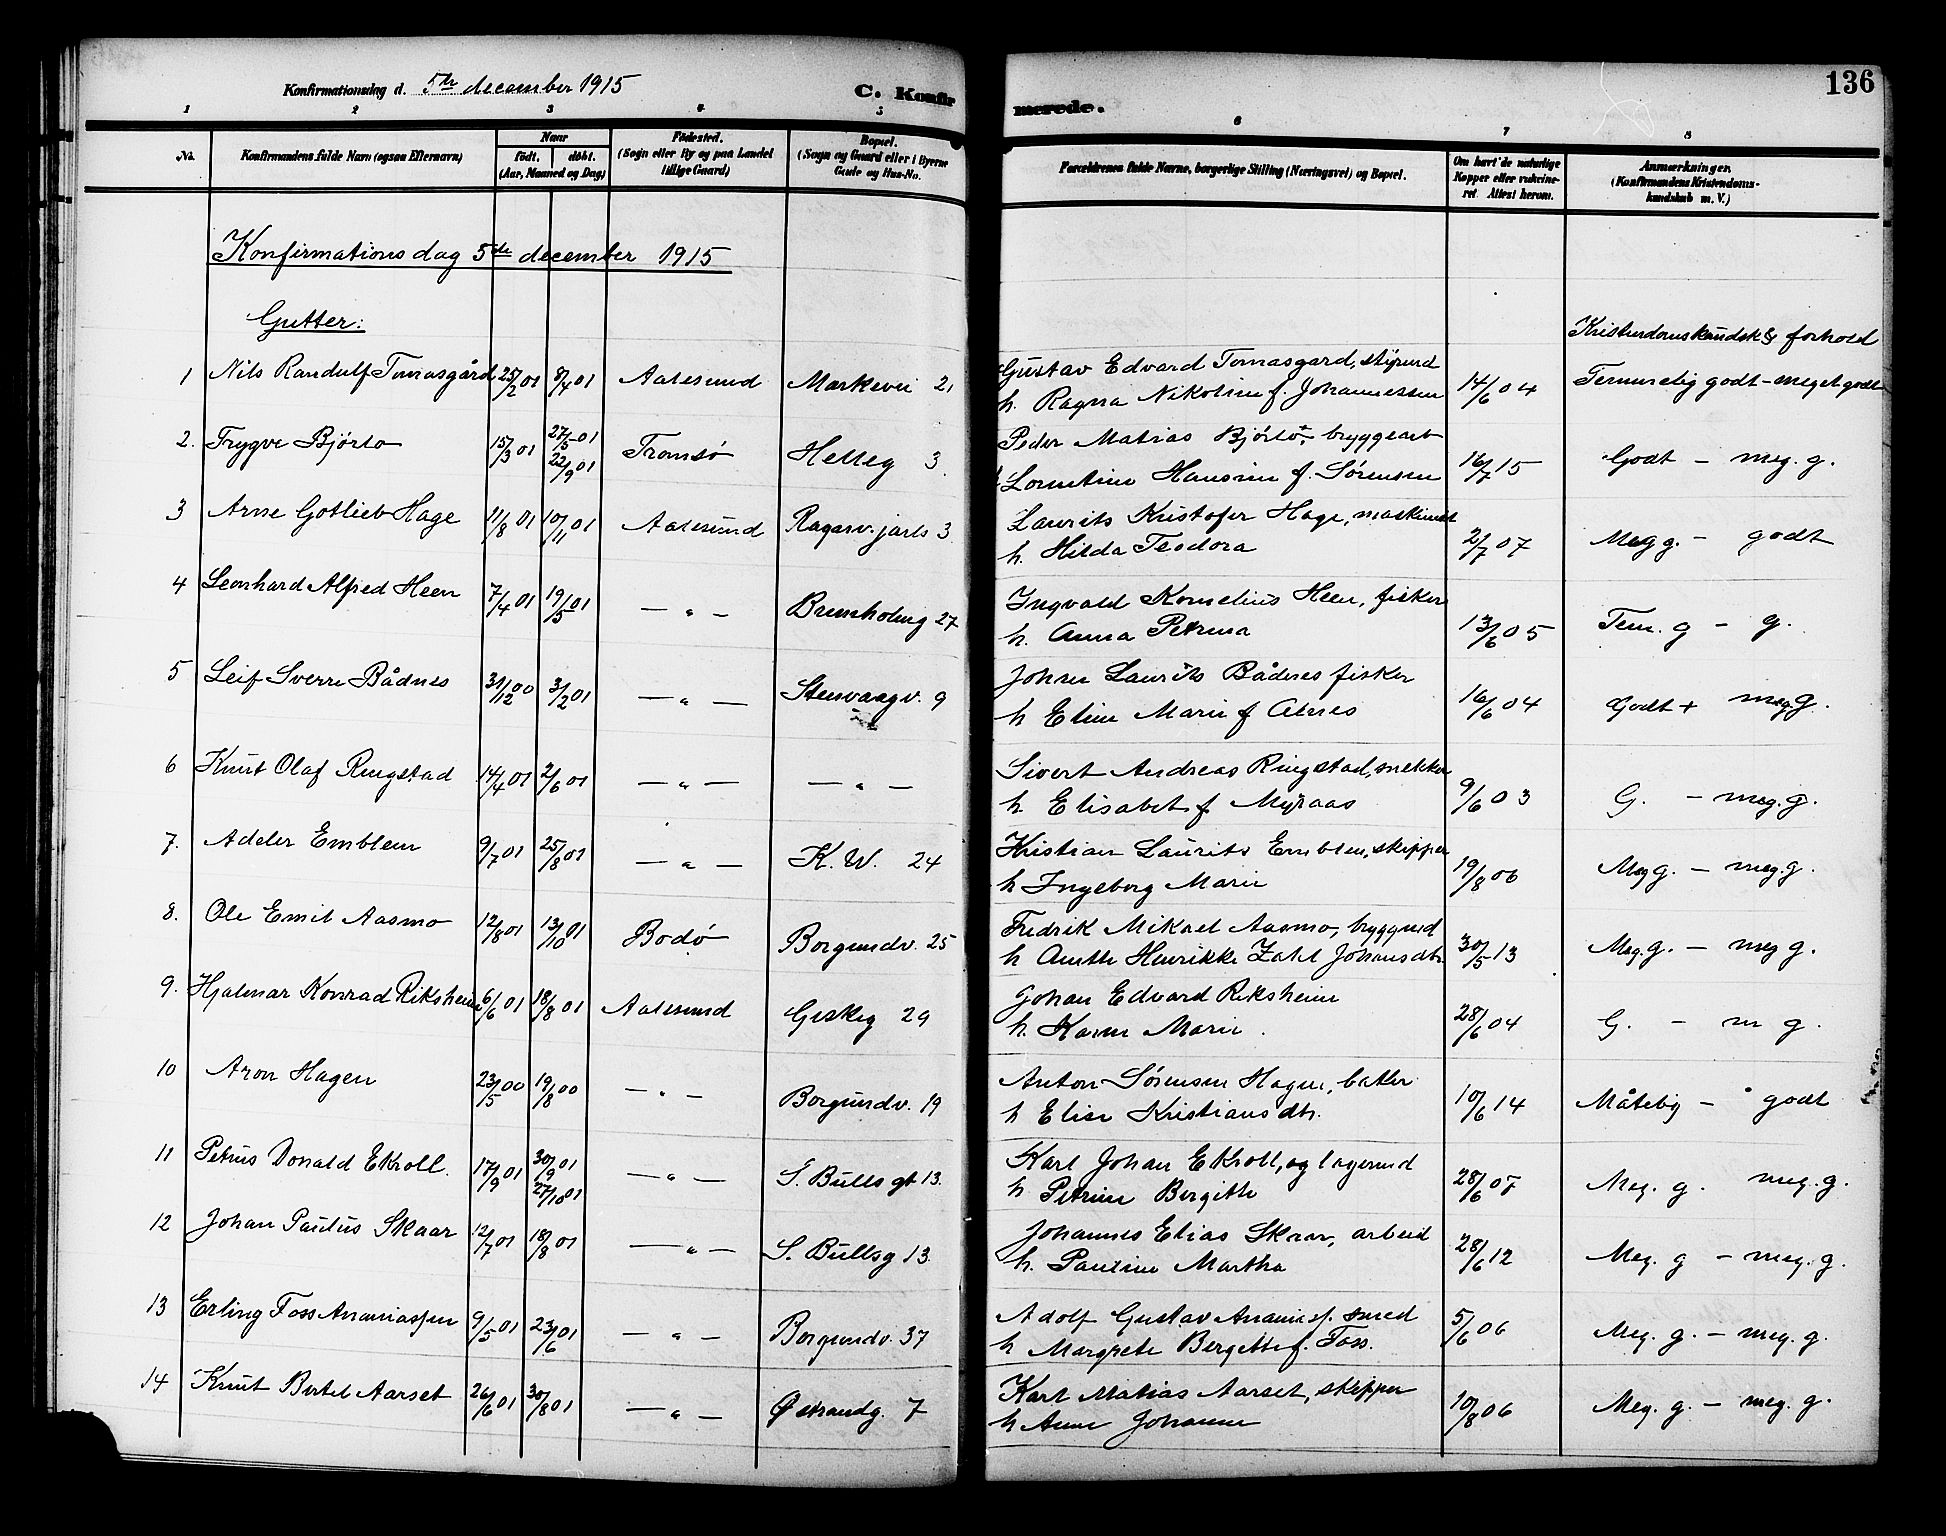 136
Konfirmationsdag d. 5te december 1915
C. Konfirmerede.
1 2 3 4 5 6 7 8
No. Konfirmandens fulde Navn (ogsaa Efternavn) Naar født. døbt. (Aar, Maaned og Dag) Fødested. (Sogn eller By og paa Landet tillige Gaard) Bopæl. (Sogn og Gaard eller i Byerne Gade og Hus-No. Forældrenes fulde Navne, borgerlige Stilling (Næringsvei) og Bopæl. Om havt de naturlige Kopper eller vakcineret Attest herom. Anmærkninger. (Konfirmandens Kristendomskundskab m. V.)
Konfirmationsdag 5te december 1915
Gutter:
Kristendomskundsk & forhold
1 Nils Randulf Tomasgård 25/2 01 8/4 01 Aalesund Markevei 21 Gustav Edvard Tomasgard, styrmd 14/6 04 Temmelig godt - meget godt
h. Ragna Nikoline f. Johannessen
2. Trygve Bjørlo 15/3 01 27/5 01 22/9 01 Tromsø Helleg 3. Peder Matias Bjørlo, bryggearb 16/7 15 Godt - meg. g.
Lorentine Hansine f. Sørensen
3 Arne Gotlieb Hage 11/8 01 10/11 01 Aalesund Ragnv. jarls 3 Laurits Kristofer Hage, maskinist 2/7 07 Meg g. - godt
h. Hilda Teodora
4 Leonhard Alfred Heen 7/4 01 19/5 01 — " — Brunholmg 27 Ingvald Kornelius Heen, fisker 13/6 05 Tem. g - g.
h. Anna Petrina
5 Leif Sverre Bådnes 31/12 00 3/2 01 — " — Stenvaagv. 9 Johan Laurits Bådnes fisker 16/6 04 Godt + meg g.
h Eline Marie f Alnes
6 Knut Olaf Ringstad 14/4 01 2/6 01 — " — — " — Sivert Andreas Ringstad, snekker 9/6 03 G. - meg. g.
h. Elisabet f Myraas
7. Adeler Emblem 9/7 01 25/8 01 — " — K. W. 24 Kristian Laurits Emblem, skipper 19/8 06 Meg g. - meg. g.
h Ingeborg Marie
8. Ole Emil Aasmo 12/8 01 13/10 01 Bodø Borgundv. 25 Fredrik Mikael Aasmo, byggmd 30/5 13 Meg. g. - meg g.
h Anette Henrikke Zahl Johansdtr
9. Hjalmar Konrad Riksheim 6/6 01 18/8 01 Aalesund Giskeg 29 Johan Edvard Riksheim 28/6 04 G. - m g.
h. Karen Marie.
10 Aron Hagen 23/5 00 19/8 00 — " — Borgundv. 19 Anton Sørensen Hagen, bakker 10/6 14 Måtelig - godt
h Elise Kristiansdtr.
11 Petrus Donald Ekroll. 17/9 01 30/9 01 27/10 01 — " — S. Bullsgt 13. Karl Johan Ekroll, og lagermd 28/6 07 Meg. g. meg. g.
h Petrine Bergithe
12 Johan Paulus Skaar 12/7 01 18/8 01 — " — S. Bullsg 13. Johannes Elias Skaar, arbeid 28/6 12 Meg. g - meg. g.
h. Pauline Martha
13 Erling Foss Ananiassen 9/5 01 23/6 01 — " — Borgundv. 37 Adolf Gustav Ananies. smed 5/6 06 Meg. g. - meg. g.
h Margrete Bergette f. Foss.
14 Knut Bertel Aarset 26/6 01 30/8 01 — " — Østrandg. 7 Karl Matias Aarset, skipper 10/8 06 Meg. g. - meg. g.
h Anne Johanne